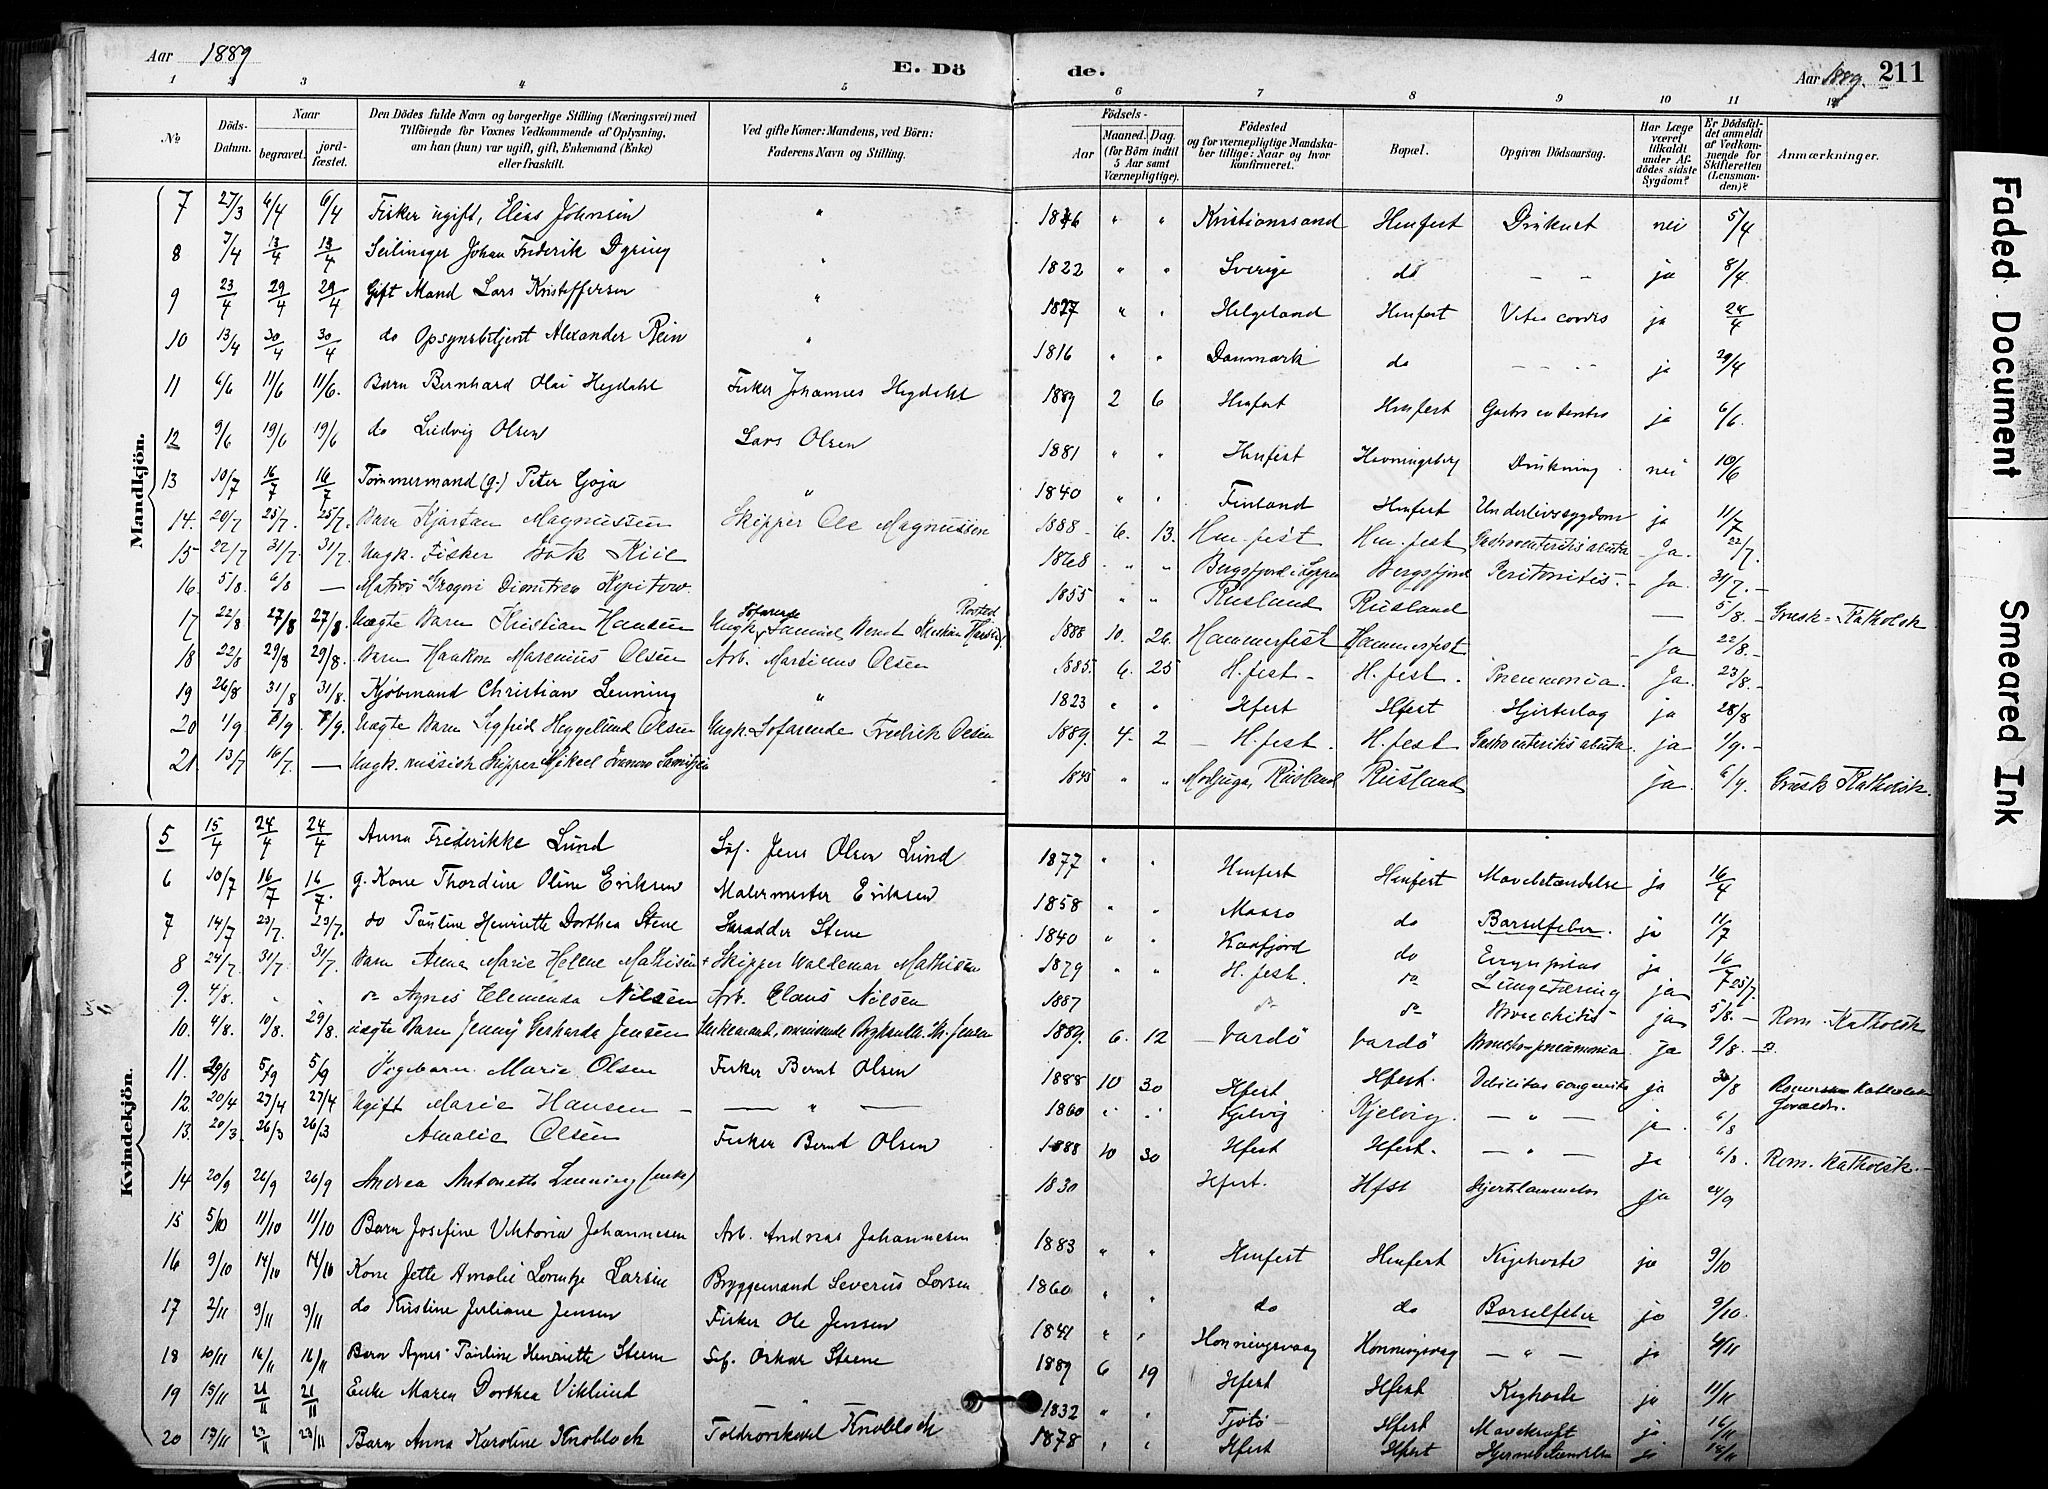 Aar 1889
E. Dö
de.
Aar 1889. 211
1 2 3 4 5 6 7 8 9 10 11 12
No
Döds-Datum.
Naar
begravet.
jord-fæstet.
Den Dödes fulde Navn og borgerlige Stilling (Næringsvei) med
Tilföiende for Voxnes Vedkommende af Oplysning,
om han (hun) var ugift, gift, Enkemand (Enke)
eller fraskilt.
Ved gifte Koner: Mandens, ved Börn:
Faderens Navn og Stilling.
Födsels-
Aar
Maaned. Dag.
(for Börn indtil
5 Aar samt
Værnepligtige).
Födested
og for værnepligtige Mandskaber tillige: Naar og hvor
konfirmeret.
Bopæl.
Opgiven Dödsaarsag.
Har Læge
været
tilkaldt
under Afdödes sidste
Sygdom?
Er Dödsfaldet anmeldt
af Vedkommende for
Skifteretten
(Lensmanden)?
Anmærkninger.
Mandkjön.
7 27/3 6/4 6/4 Fisker ugift, Elias Johnsen " 1846 " " Kristianssand Hmfest Druknet nei 5/4
8 7/4 13/4 13/4 Johan Frederik Dyring " 1822 " " Sverige do — — ja 8/4
9 23/4 29/4 29/4 Gift Mand Lars Kristoffersen " 1827 " " Helgeland Hmfest Vitis cordis ja 24/4
10 13/4 30/4 30/4 do Opsynsbetjent Alexander Rein " 1816 " " Danmark do — — ja 29/4
11 6/6 11/6 11/6. Barn Bernhard Olai Hegdahl Fisker Johannes Hegdahl 1889 2 6 Hmfest Hmfest ja 6/6.
12 9/6 19/6 19/6 do Ludvig Olsen Lars Olsen 1881 " " Hmfest Havningsberg Drukning nei 10/6
13 10/7 16/7 16/7 Tømmermand (g.) Peter Goja " 1840 " " Finland Hmfest Underlivssygdom ja 11/7
14. 20/7 25/7. 25/7. Barn Kjartan Magnussen Skipper Ole Magnussen 1888 6. 13. Hm.fest Hm.fest Gastroenteritis acuta Ja. 22/7.
15 22/7 31/7 31/7. Ungk. Fisker Isak Kiil 1868 " " Bergsfjord i Loppen Bergsfjord Peritonitis. Ja. 31/7.
16. 5/8. 6/8 — Matros Dimitrew 1855 " " Rusland Rusland — 5/8. Græsk-Katholsk
17 22/8 27/8 27/8. Uægte Barn Kristian Hansen Ungk. Søfarende Samuel Bernt Kristian Hansen 1888 10. 26. Hammerfest Hammerfest Ja 22/8.
18 22/8 29/8 29/8. Barn Haakon Marenius Olsen Arb. Martinus Olsen 1885. 6. 25 H.fest. H.fest. Pneumonia. Ja. 23/8.
19 26/8 31/8 31/8. Kjøbmand Christian Lenning " 1823 " " Hfest Hfest Hjerteslag ja 28/8
20 1/9 7/9 7/9. Uægte Barn Sigfrid Heggelund Olsen Ungk. Søfarende Fredrik Olsen 1889. 4. 2 H.fest. H.fest Gastroenteritis acuta. ja 1/9.
21. 13/7 16/7. — Ungk. russisk Skipper Mikael 1845 " " Rusland Rusland ja. 6/9. Græsk Katholsk.
Kvindekjön.
5 15/4 24/4 24/4 Anna Frederikke Lund Søf. Jens Olsen Lund 1877 " " Hmfest Hmfest Mavebetændelse ja 16/4
6 10/7 16/7 16/7. g. Kone Thordine Oline Eriksen Malermester Eriksen 1858 " " Maasø do Barselfeber. ja 11/7
7 14/7 23/7. 23/7. do Pauline Henriette Dorthea Stene Skrædder Stene 1840 " " Kaafjord do ja 16/7
8 24/7. 31/7. 31/7. Barn Anna Marie Helene Mathisen Skipper Waldemar Mathisen 1879 " " H.fest. do Lungetæring ja 25/7.
9. 4/8. " " do Agnes Elemenda Nilsen Arb. Claus Nilsen 1887 do do Bronchitis ja 5/8. Rom.-Katholsk
10. 4/8. 10/8. 29/8. uægte Barn Jenny Gerharda Jensen Enkemand, 1889. 6. 12 Vardö Vardö Broncho-pneumonia Ja 9/8.
11. 29/8 5/9 5/9 Pigebarn. Marie Olsen Fisker Bernt Olsen 1888 10 30 Hfest Hfest. Debilitas congenita ja /8
12. 20/4 27/4 27/4 Ugift Marie Hansen — " — 1860 " " Kjelvig Kjelvig. — " — ja. 6/8
13. 20/3. 26/3 26/3 Amalie Olsen Fisker Bernt Olsen 1888 10 30 Hfest Hfest. — " — Ja 6/8. Rom. Katholsk.
14 20/9 26/9 26/9 Andrea Antonette Lenning (enke) 1830 Hfest. Hfest ja 24/9
15 5/10 11/10 11/10 Barn Josefine Viktoria Johannesen Arb. Andreas Johannesen 1883 " " Hmfest Hmfest Kighoste ja 9/10
16 9/10 14/10 14/10 Kone Jette Amalie Lorentze Larsen Bryggemand Severus Larsen 1860 " " do do Barselfeber ja 9/10.
17 2/11 9/11 9/11 do Kristine Juliane Jensen Fisker Ole Jensen 1841 " " Honningsvaag Honningsvaag — " — ja 4/11
18 10/11 16/11 16/11 Barn Agnes Pauline Henriette Steene Søf. Oskar Steene 1889 6 19 Hfest Hfest Kighoste ja 11/11
19 15/11 21/11 21/11 Enke Maren Dorthea Viklund " 1832 " " Tjøtø Hfest Mavekræft ja 16/11
20 17/11 23/11 23/11 Barn Anna Karoline Knoblock Toldrorskarl Knoblock 1878 " " Hfest Hfest Hjernebetændelse ja 18/11
Faded Document
Smeared Ink